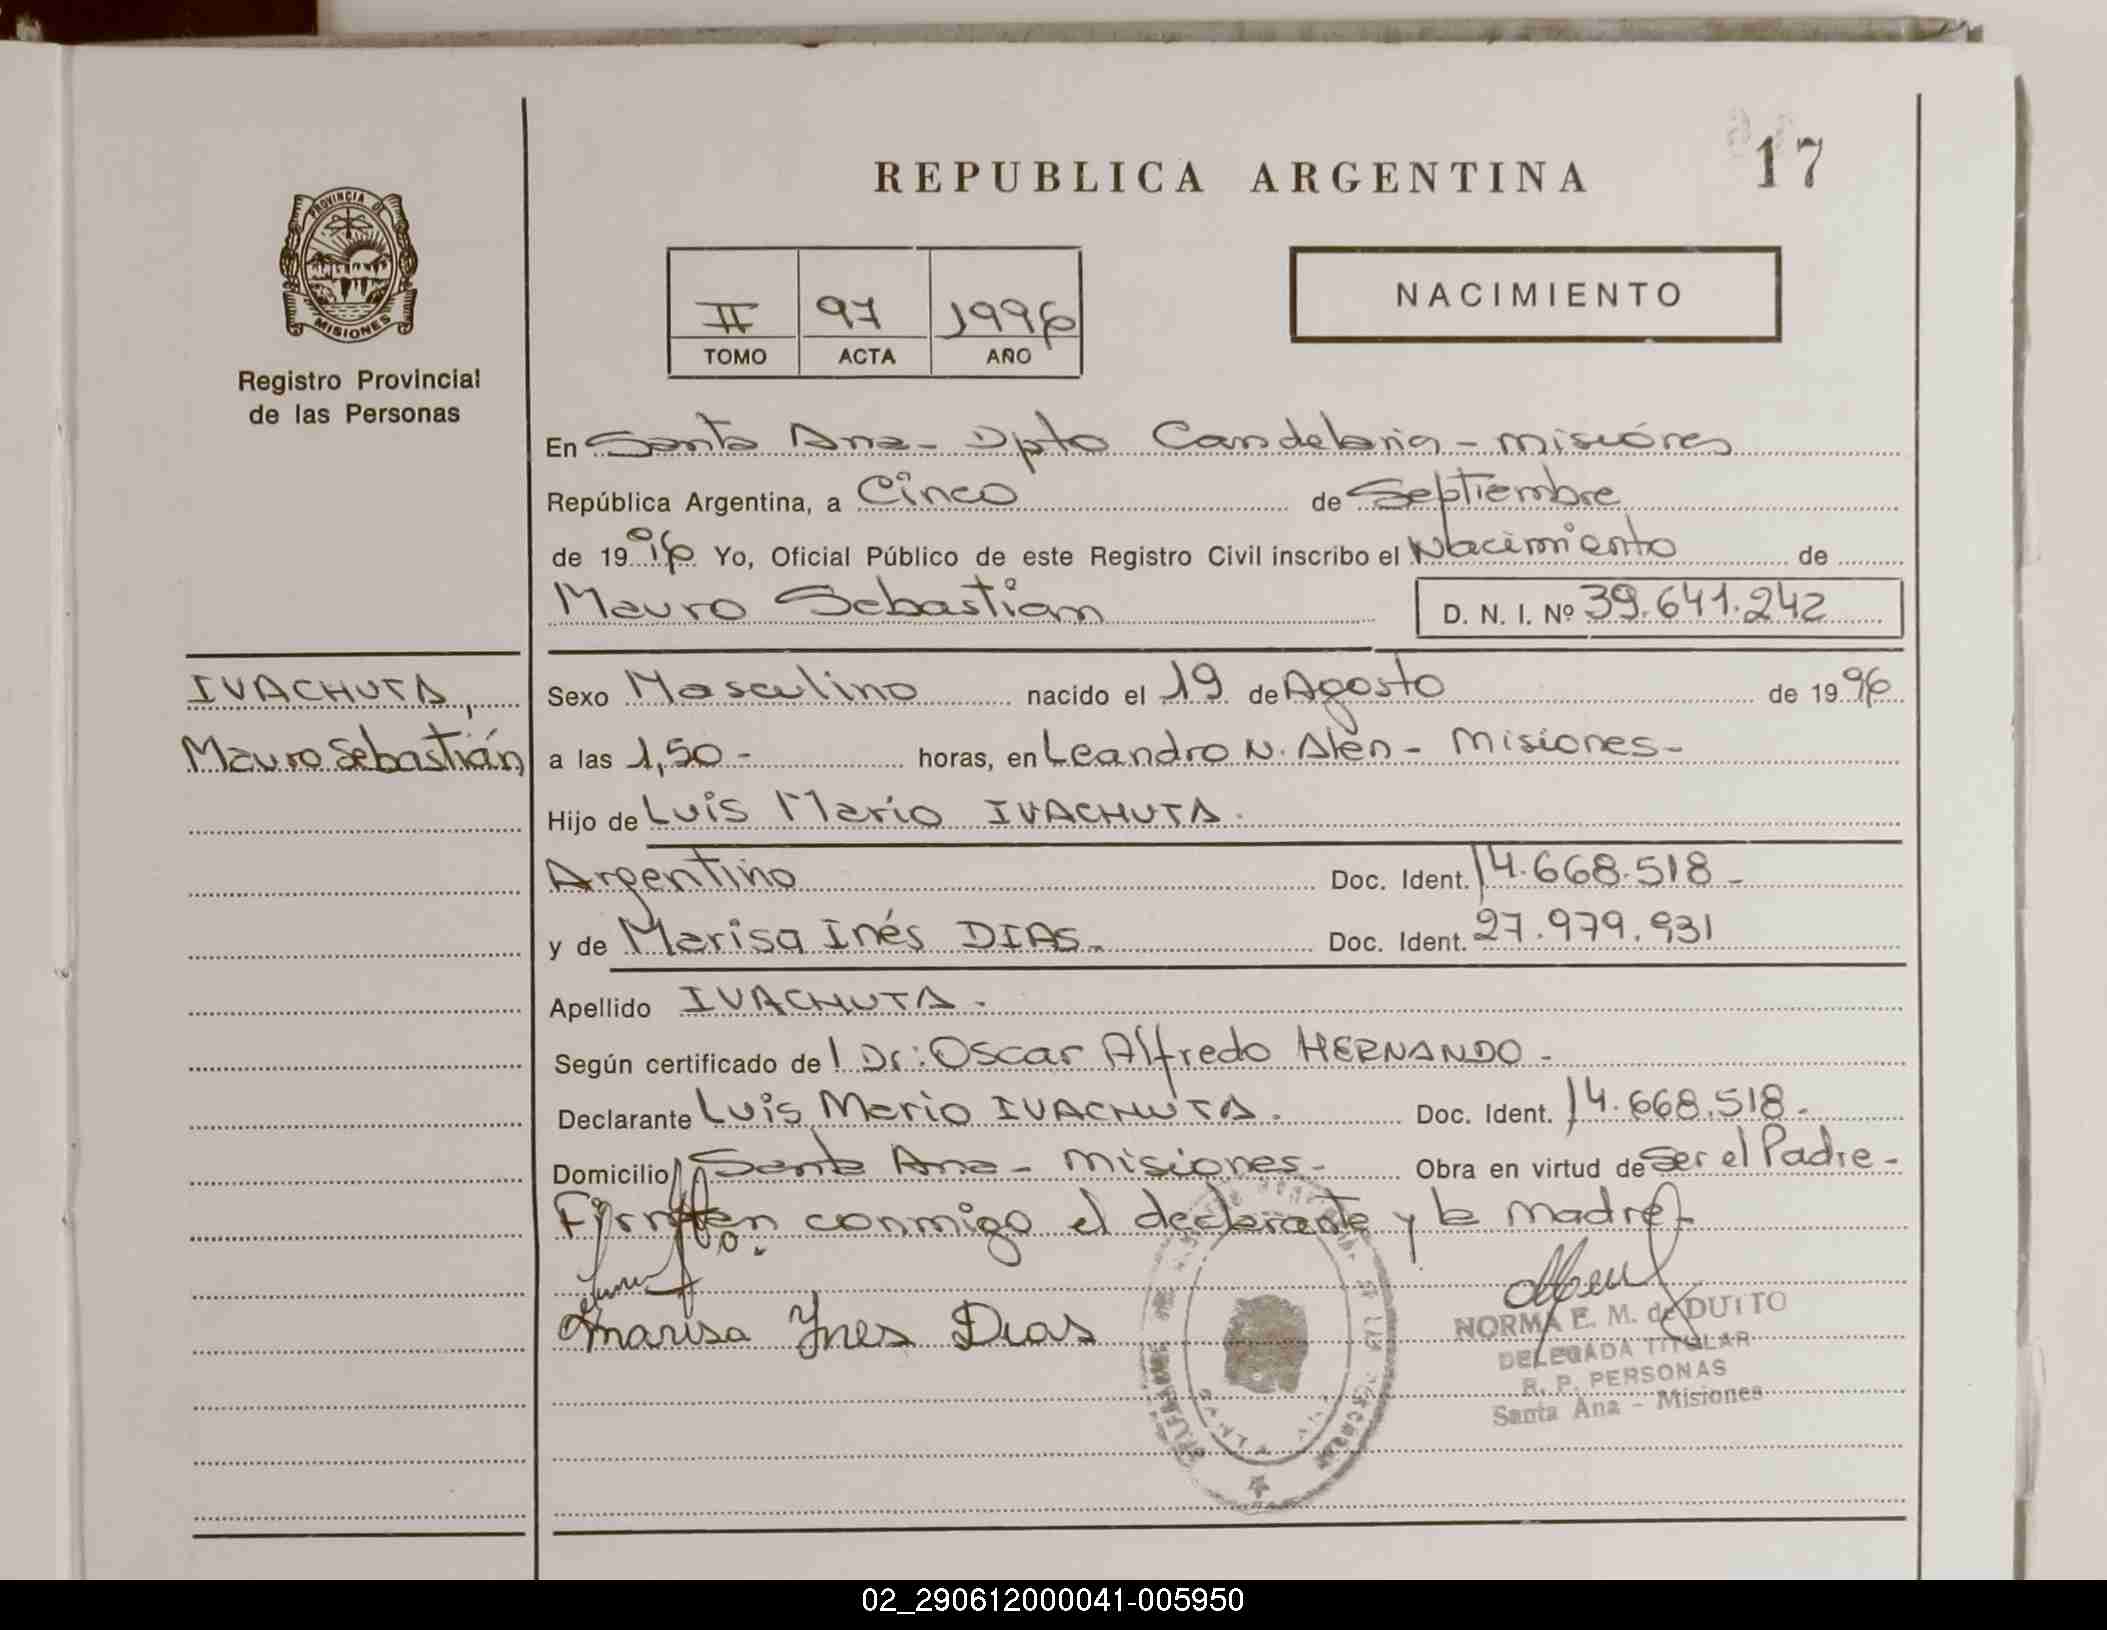 17
REPUBLICA ARGENTINA
PROVINCIA DE
MISIONES
Registro Provincial
de las Personas
II 97 1996
TOMO ACTA AÑO
NACIMIENTO
En Santa Ana - Dpto Candelaria - Misiones
República Argentina, a Cinco de Septiembre
de 1996 Yo, Oficial Público de este Registro Civil inscribo el Nacimiento de
Mauro Sebastian D. N. I. Nº 39.641.242
IVACHUTA,
Mauro Sebastián
Sexo Masculino nacido el 19 de Agosto de 1996
a las 1,50 - horas, en Leandro N. Alen - Misiones -
Hijo de Luis Mario IVACHUTA.
Argentino Doc. Ident. 14.668.518 -
y de Marisa Inés DIAS - Doc. Ident. 27.979.931
Apellido IVACHUTA.
Según certificado de l Dr: Oscar Alfredo HERNANDO -
Declarante Luis Mario IVACHUTA. Doc. Ident. 14.668.518 -
Domicilio Santa Ana - Misiones - Obra en virtud de Ser el Padre -
Firman conmigo el declarante y la madre -
Marisa Ynes Dias
NORMA E. M. de DUITO
DELEGADA TITULAR
R. P. PERSONAS
Santa Ana - Misiones
02_290612000041-005950